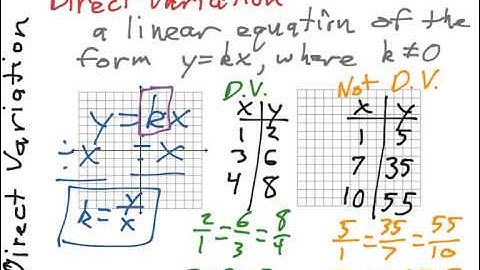 Direct Variation
a linear equation of the
form y=kx, where k≠0
Direct Variation
y = kx
÷x ÷x
k = y/x
D.V.
x y
1 2
3 6
4 8
2/1 = 6/3 = 8/4
Not D.V.
x y
1 5
7 35
10 55
5/1 = 35/7 = 55/10